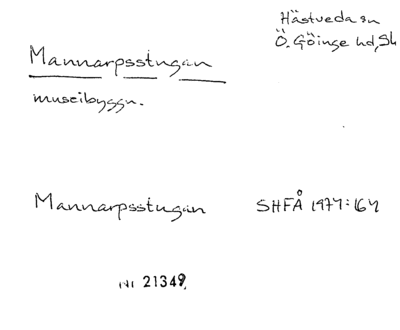 Hästveda sn
Ö. Göinge hd, Sk
Mannarpsstugan
museibyggn.
Mannarpsstugan SHFÅ 1974:164
NI 21349